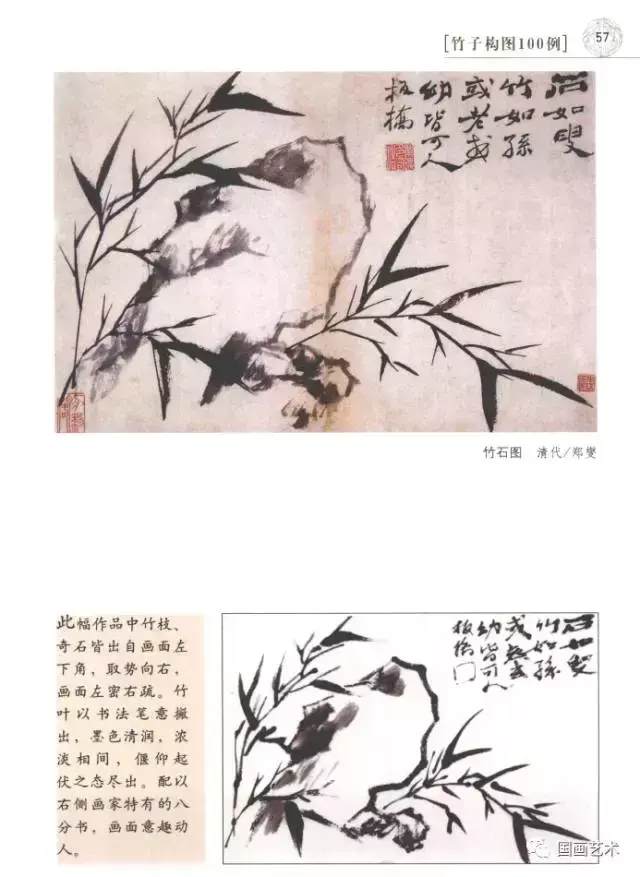 [竹子构图100例]
57
石如叟
竹如孫
或老或
幼皆可人
板橋
竹石图 清代/郑燮
此幅作品中竹枝、
奇石皆出自画面左
下角，取势向右，
画面左密右疏。竹
叶以书法笔意撇
出，墨色清润，浓
淡相间，偃仰起
伏之态尽出。配以
右侧画家特有的八
分书，画面意趣动
人。
石如叟
竹如孫
或老或
幼皆可人
板橋
国画艺术